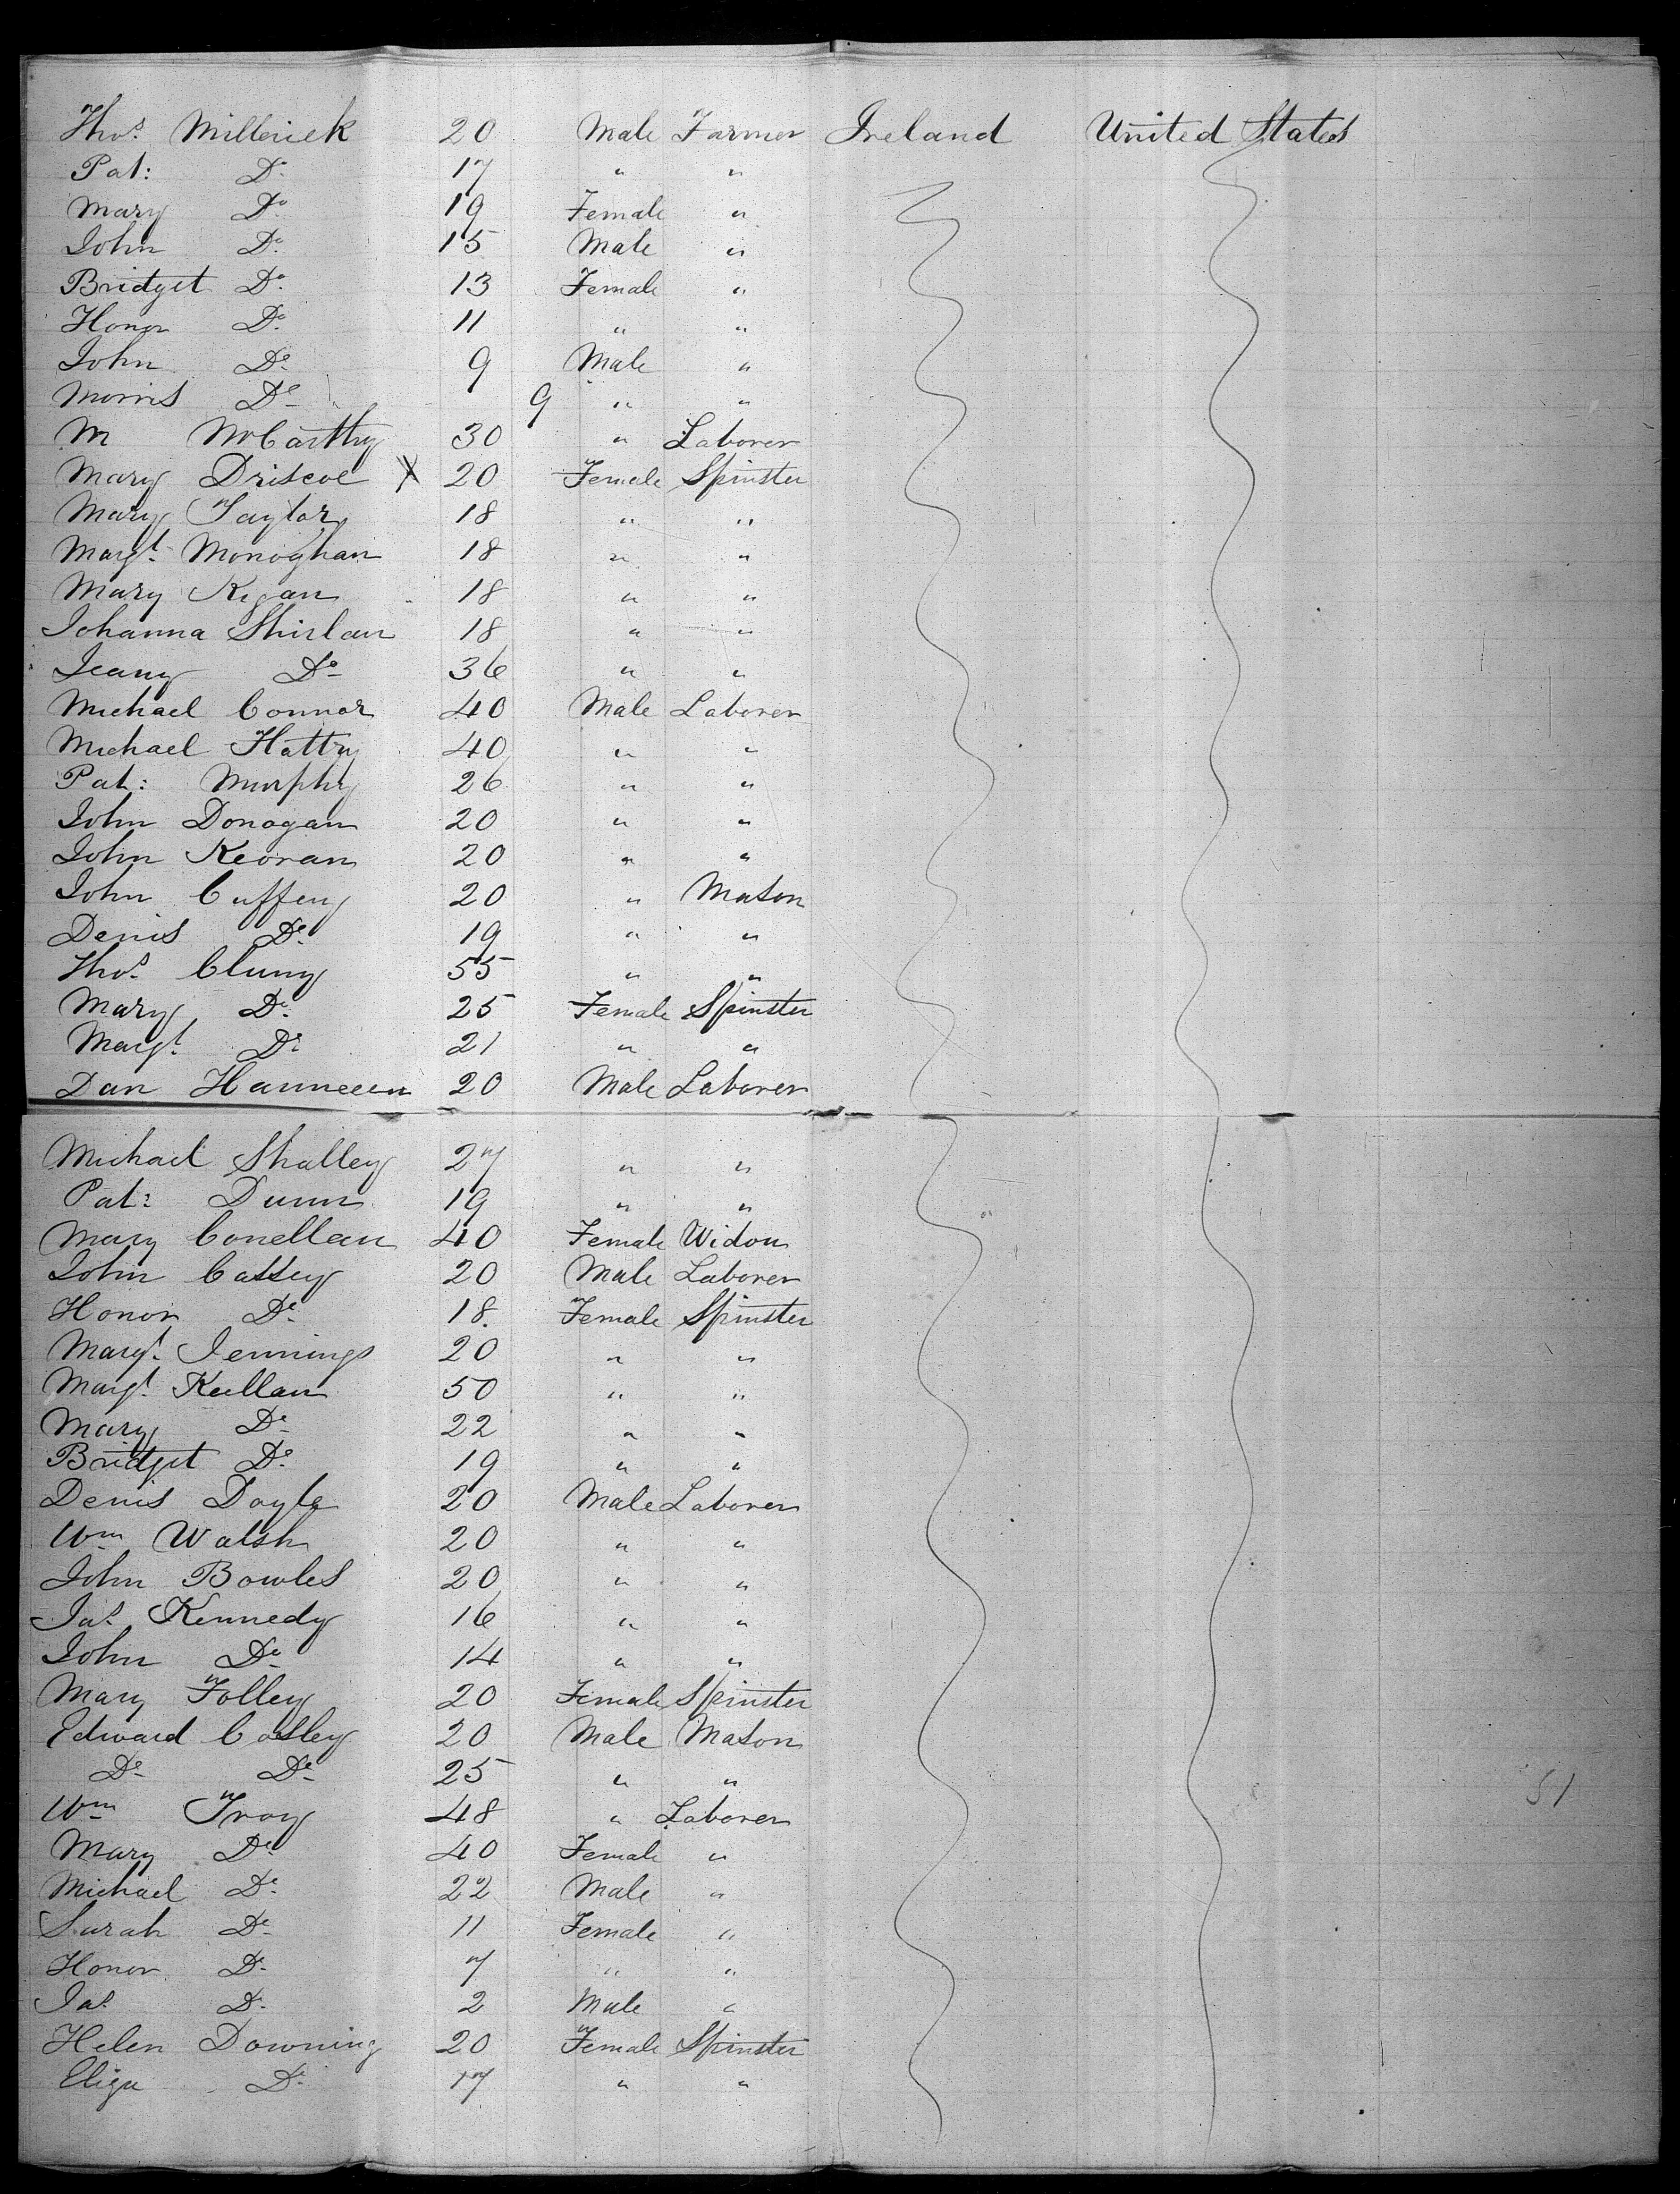 Thos. Millerick 20 Male Farmer Ireland United States
Pat: Do. 17 " "
Mary Do. 19 Female "
John Do. 15 Male "
Bridget Do. 13 Female "
Honor Do. 11 " "
John Do. 9 Male "
Morris Do. 9 " "
M McCarthy 30 " Laborer
Mary Driscoe X 20 Female Spinster
Mary Taylor 18 " "
Margt. Monoghan 18 " "
Mary Kegan 18 " "
Johanna Shirlan 18 " "
Jeany Do. 36 " "
Michael Connor 40 Male Laborer
Michael Hattry 40 " "
Pat: Murphy 26 " "
John Donogan 20 " "
John Keoran 20 " "
John Cuffey 20 " Mason
Denis Do. 19 " "
Thos. Cluny 55 " "
Mary Do. 25 Female Spinster
Margt. Do. 21 " "
Dan 20 Male Laborer
Michael Shalley 27 " "
Pat: Dunn 19 " "
Mary Conellan 40 Female Widow
John Cassey 20 Male Laborer
Honor Do. 18. Female Spinster
Margt. Jennings 20 " "
Margt. Keellan 50 " "
Mary Do. 22 " "
Bridget Do. 19 " "
Denis Doyle 20 Male Laborer
Wm Walsh 20 " "
John Bowles 20 " "
Jas. Kennedy 16 " "
John Do. 14 " "
Mary Folley 20 Female Spinster
Edward Cosley 20 Male Mason
Do. Do. 25 " "
Wm Troy 48 " Laborer
Mary Do. 40 Female "
Michael Do. 22 Male "
Sarah Do. 11 Female "
Honor Do. 7 " "
Jas. Do. 2 Male "
Helen Downing 20 Female Spinster
Eliza Do. 17 " "
51